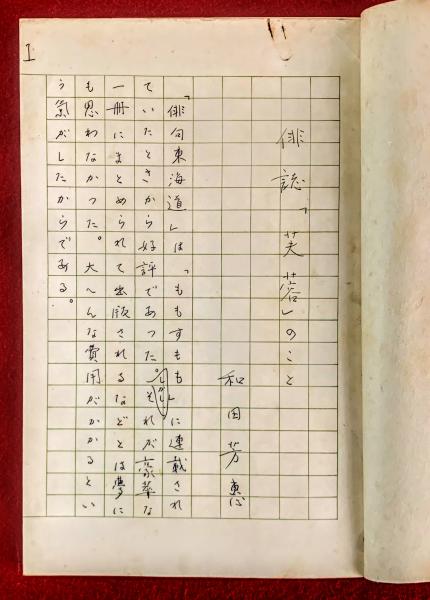 1
俳誌「芙蓉」のこと
和田芳恵
「俳句東海道」は「ももすもも」に連載され
ていたときから好評であつた。それが豪華な
一冊にまとめられて出版されるなどとは夢に
も思わなかつた。大へんな費用がかかるとい
う氣がしたからである。